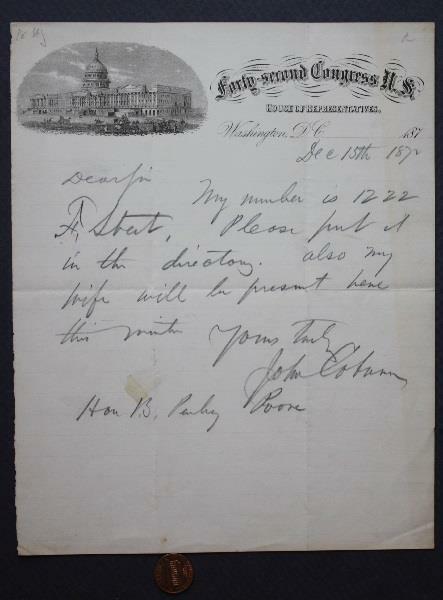 Forty-second Congress U.S.
HOUSE OF REPRESENTATIVES.
Washington, D.C. 187
Dec 15th 1872
Dear Sir
My number is 1222
F. Street, Please put it
in the directory. also my
wife will be present here
this winter Yours truly
John Coburn
Hon B. Perley Poore